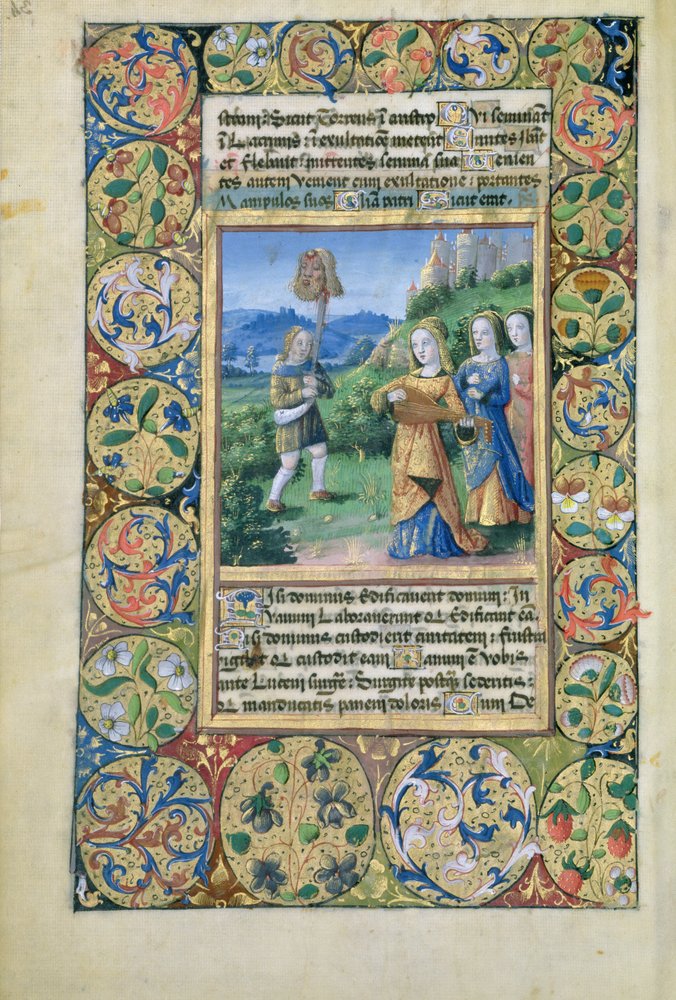 stram Sicut Torrens ī austro Qui semināt
ī Lacrimis : ī exultatiōe metent Euntes ibāt
et flebant : mittentes semina sua Venien
tes autem venient cum exultatione : portantes
Manipulos suos Gl̄ia patri Sicut erat.
Nisi dominus Edificaverit domum : In
vanum Laboraverunt q̄ Edificant eā.
Nisi dominus custodierit civitatem : frustra
vigilat q̄ custodit eam Vanum ē vobis
ante Lucem surgē : Surgite postq̄ sederitis :
q̄ manducatis panem doloris Cum De